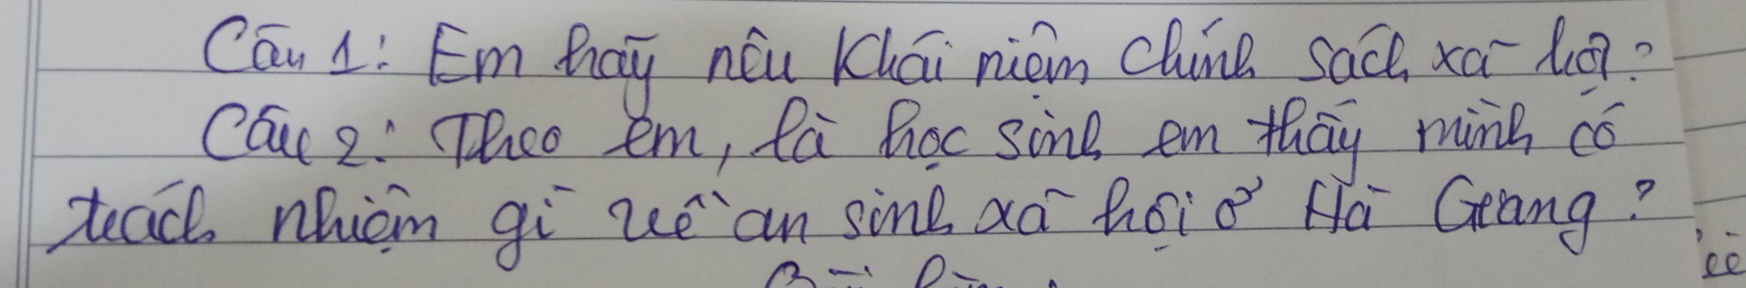 Câu 1: Em hãy nêu Khái niệm Chính sách xã hội?
Câu 2: Theo em, là học sinh em thấy mình có
trách nhiệm gì về an sinh xã hội ở Hà Giang?